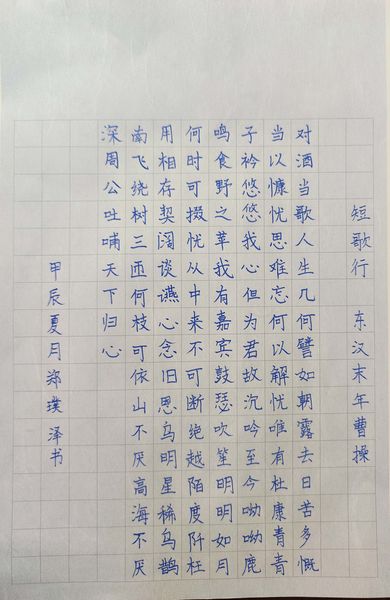 短歌行 东汉末年曹操
对酒当歌人生几何譬如朝露去日苦多慨
当以慷忧思难忘何以解忧唯有杜康青青
子衿悠悠我心但为君故沉吟至今呦呦鹿
鸣食野之苹我有嘉宾鼓瑟吹笙明明如月
何时可掇忧从中来不可断绝越陌度阡枉
用相存契阔谈讌心念旧恩乌明星稀乌鹊
南飞绕树三匝何枝可依山不厌高海不厌
深周公吐哺天下归心
甲辰夏月郑璞泽书